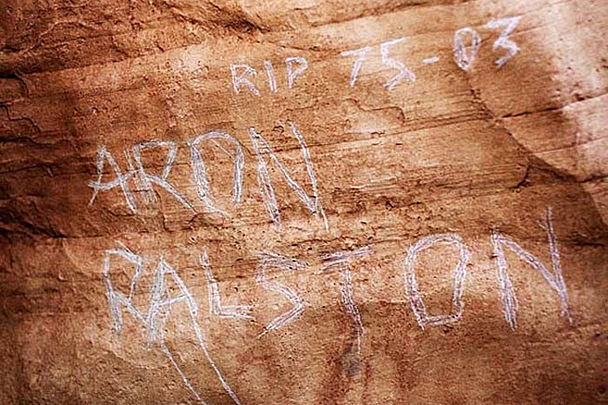 RIP 75-03
ARON
RALSTON